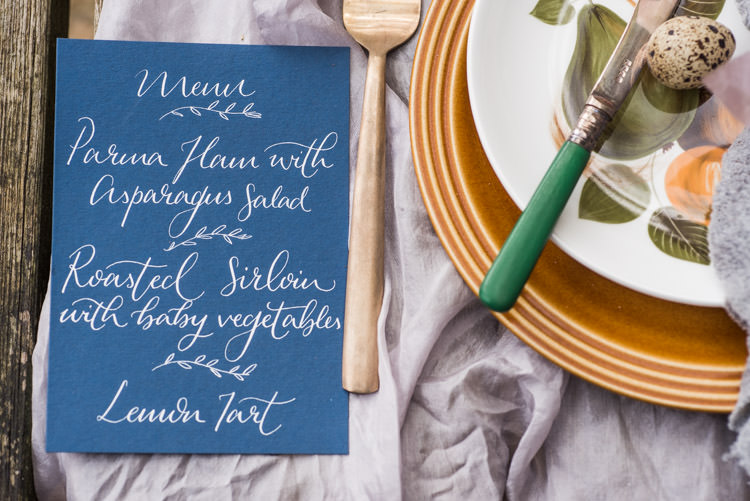 Menu
Parma Ham with
Asparagus Salad
Roasted Sirloin
with baby vegetables
Lemon Tart